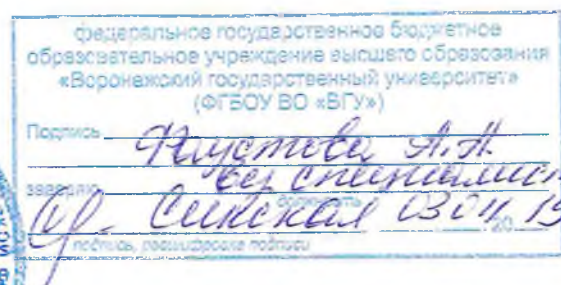 федеральное государственное бюджетное
образовательное учреждение высшего образования
«Воронежский государственный университет»
(ФГБОУ ВО «ВГУ»)
Подпись А.А.
заверяю вед специалист
должность
Синская 03 04 19
20
подпись, расшифровка подписи